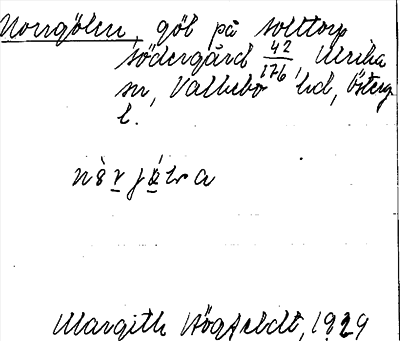 Norrgölen, göl på Solltorp
Södergård 42/176, Ulrika
sn, Valkebo hd, Österg.
l.
Margith Högfeldt, 1929